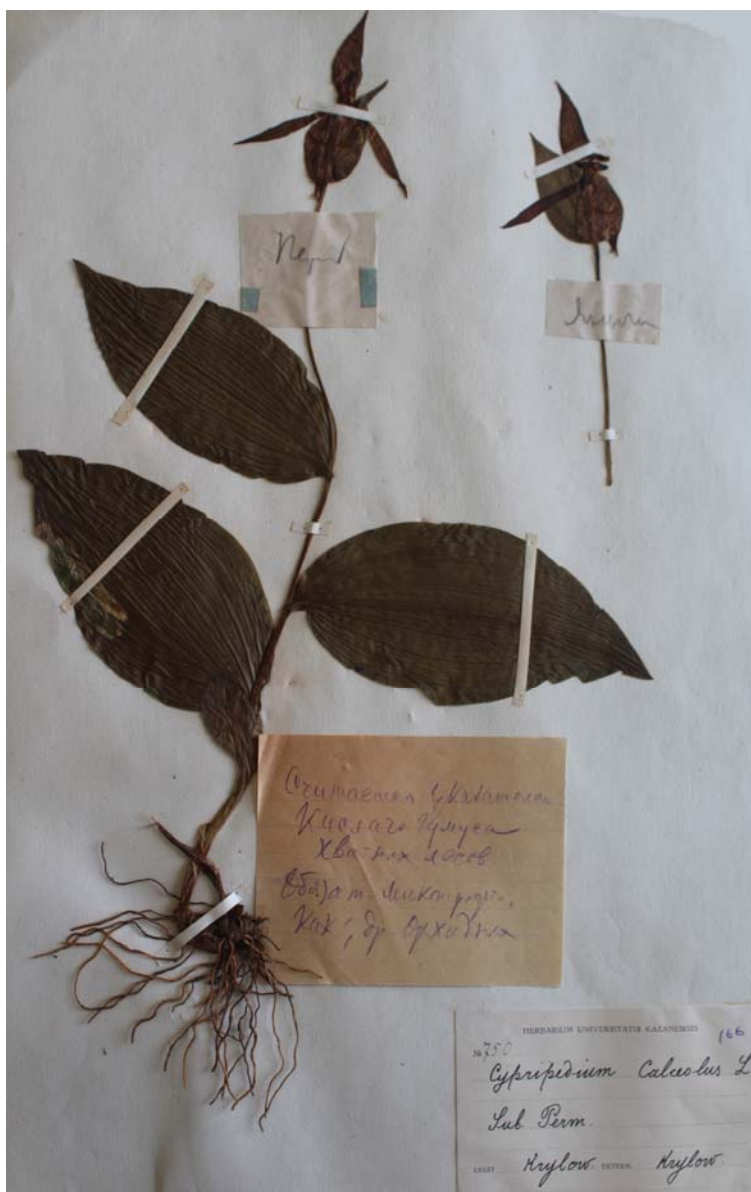 Считается указателем
Кислаго гумуса
хвойных лесов
Как и др
HERBARIUM UNIVERSITATIS KAZANENSIS 166
№ 750
Cypripedium Calceolus L
Sub Perm.
LEGIT Krylow. DETERM. Krylow.